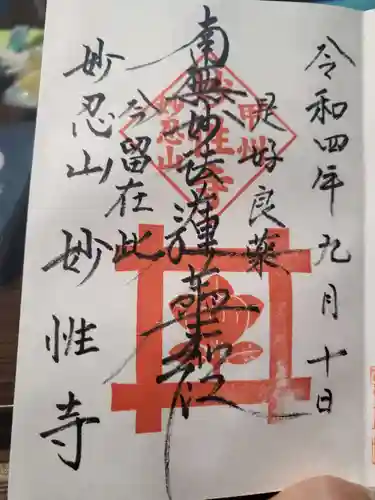 令和四年九月十日
是好良薬
南無妙法蓮華経
今留在此
妙忍山 妙性寺
甲州
妙性寺
妙忍山